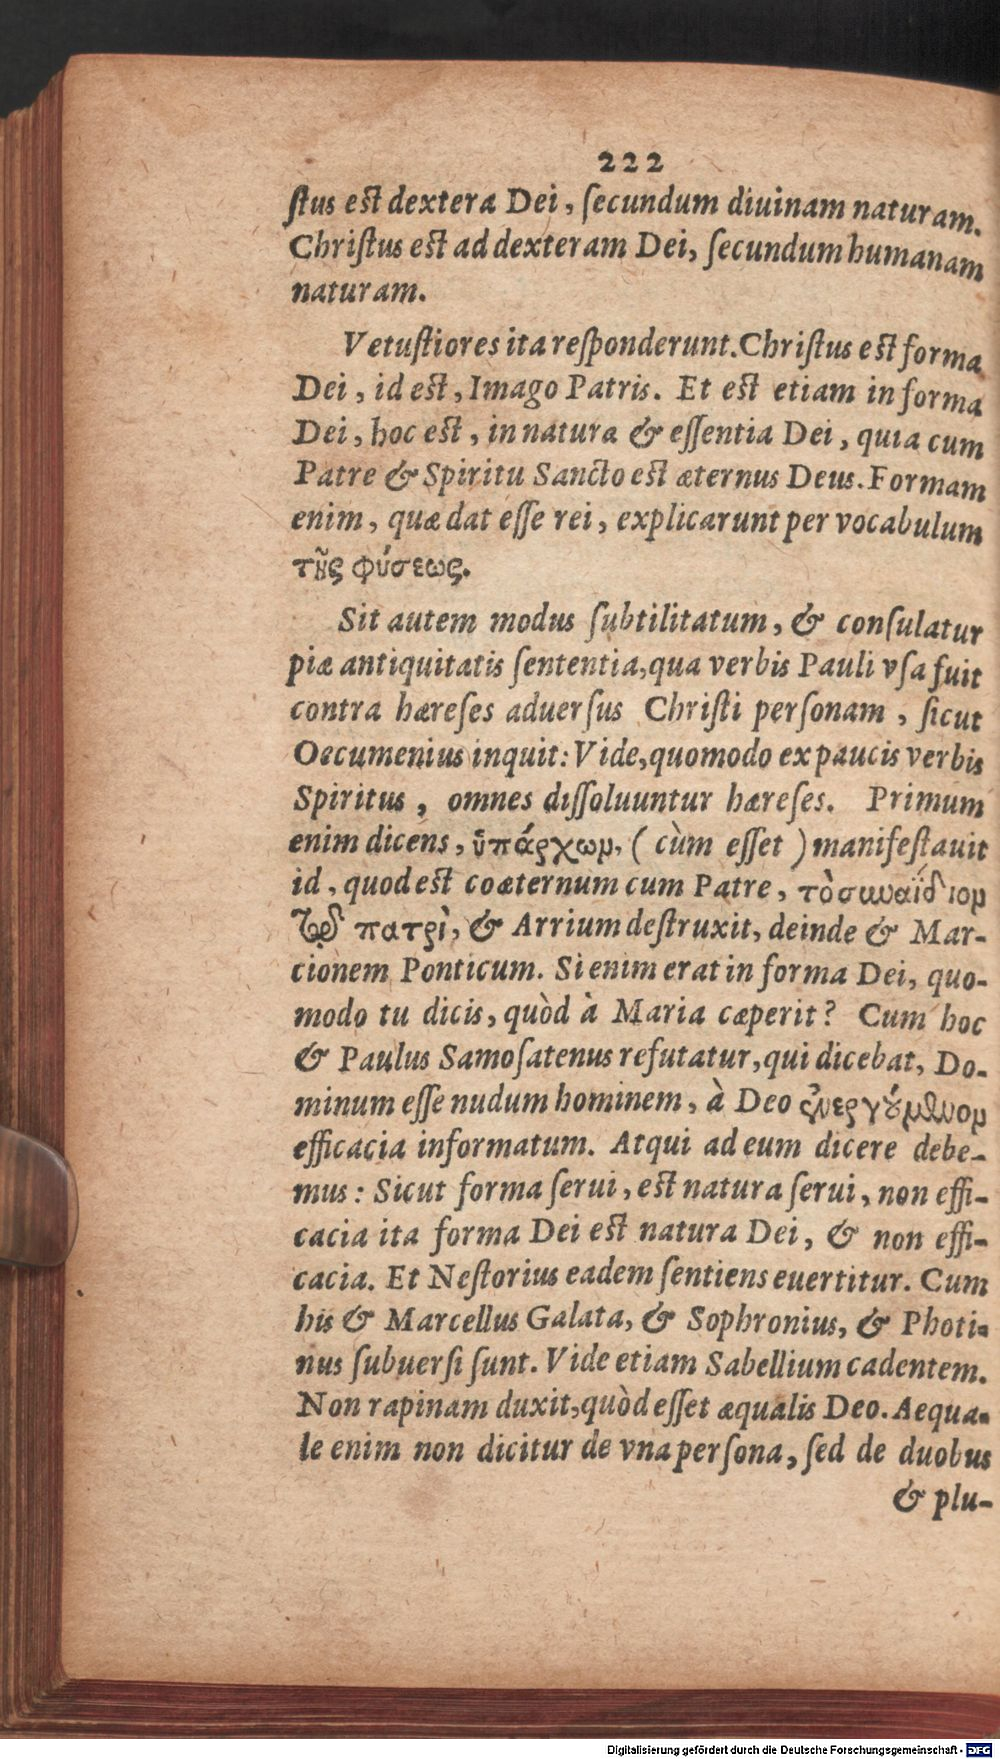 222
ſtus eſt dextera Dei, ſecundum diuinam naturam.
Chriſtus eſt ad dexteram Dei, ſecundum humanam
naturam.
Vetuſtiores ita reſponderunt. Chriſtus eſt forma
Dei, id eſt, Imago Patris. Et eſt etiam in forma
Dei, hoc eſt, in natura & eſſentia Dei, quia cum
Patre & Spiritu Sancto eſt æternus Deus. Formam
enim, quæ dat eſſe rei, explicarunt per vocabulum
τῆς φύσεως.
Sit autem modus ſubtilitatum, & conſulatur
piæ antiquitatis ſententia, qua verbis Pauli vſa fuit
contra hæreſes aduerſus Chriſti perſonam, ſicut
Oecumenius inquit: Vide, quomodo ex paucis verbis
Spiritus, omnes diſſoluuntur hæreſes. Primum
enim dicens, ὑπάρχων, (cùm eſſet) manifeſtauit
id, quod eſt coæternum cum Patre, τὸ συναΐδιον
τῷ πατρὶ, & Arrium deſtruxit, deinde & Mar-
cionem Ponticum. Si enim erat in forma Dei, quo-
modo tu dicis, quòd à Maria cæperit? Cum hoc
& Paulus Samoſatenus refutatur, qui dicebat, Do-
minum eſſe nudum hominem, à Deo ἐνεργούμενον
efficacia informatum. Atqui ad eum dicere debe-
mus: Sicut forma ſerui, eſt natura ſerui, non effi-
cacia ita forma Dei eſt natura Dei, & non effi-
cacia. Et Neſtorius eadem ſentiens euertitur. Cum
his & Marcellus Galata, & Sophronius, & Photi-
nus ſubuerſi ſunt. Vide etiam Sabellium cadentem.
Non rapinam duxit, quòd eſſet æqualis Deo. Aequa-
le enim non dicitur de vna perſona, ſed de duobus
& plu-
Digitalisierung gefördert durch die Deutsche Forschungsgemeinschaft - DFG